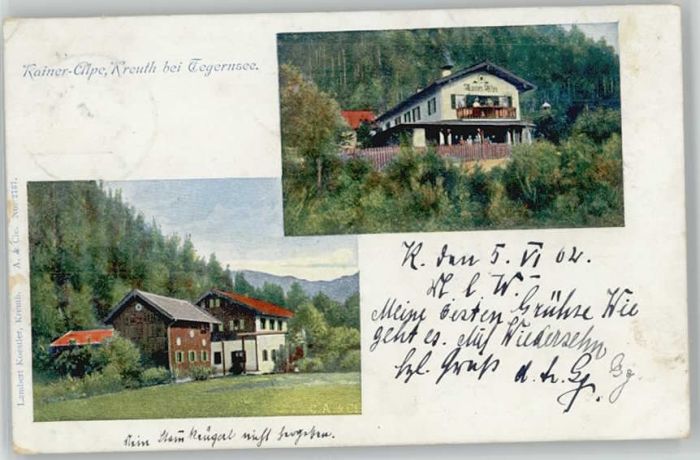 Rainer-Alpe, Kreuth bei Tegernsee.
Rainer Alpe
Lambert Koestler, Kreuth. A. & Cie. No. 2757.
K. den 5. VI 02.
M. l. W.
Meine besten Grühse Wie
geht es. Auf Wiedersehn
hzl. Gruß d. tr. Gg.
Gg.
C. A. & Cie
Kein nicht hergeben.